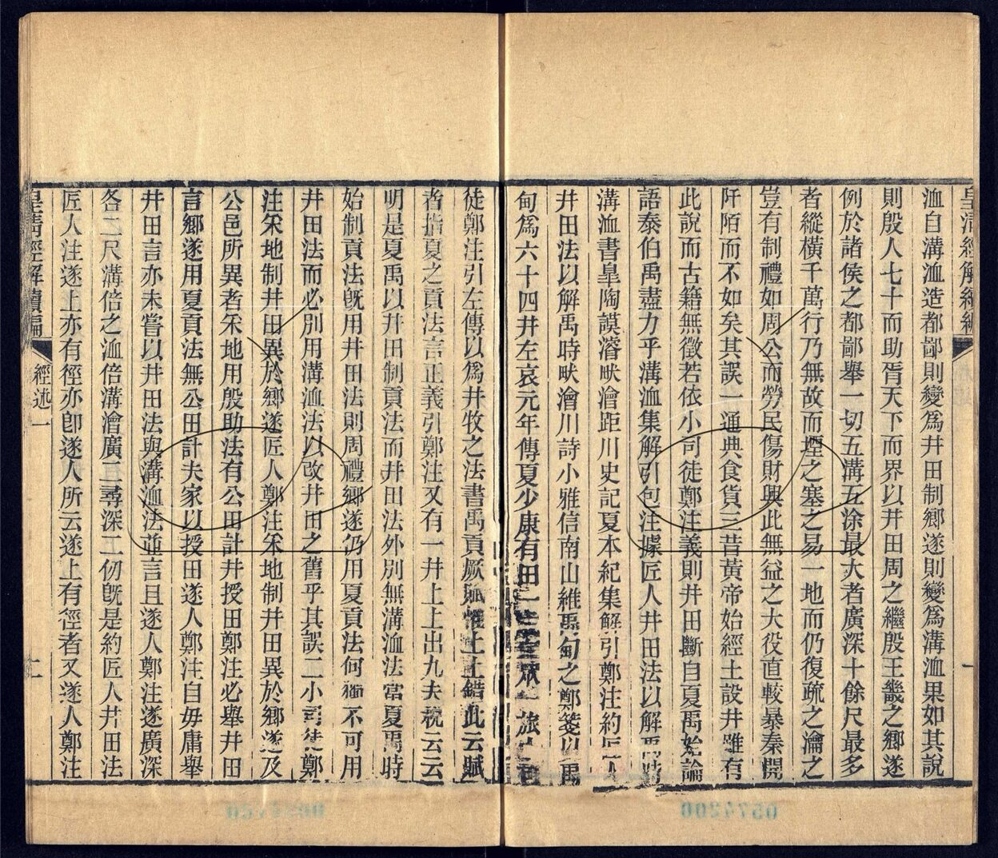 皇清經解續編
洫自溝洫造都鄙則變爲井田制鄉遂則變爲溝洫果如其說
則殷人七十而助胥天下而界以井田周之繼殷王畿之鄉遂
例於諸侯之都鄙舉一切五溝五涂最大者廣深十餘尺最多
者縱橫千萬行乃無故而堙之塞之易一地而仍復疏之瀹之
豈有制禮如周公而勞民傷財興此無益之大役直較暴秦開
阡陌而不如矣其誤一通典食貨三昔黃帝始經土設井雖有
此說而古籍無徵若依小司徒鄭注義則井田斷自夏禹始論
語泰伯禹盡力乎溝洫集解引包注據匠人井田法以解禹時
溝洫書臯陶謨濬畎澮距川史記夏本紀集解引鄭注約匠人
井田法以解禹時畎澮川詩小雅信南山維禹甸之鄭箋以禹
甸爲六十四井左哀元年傳夏少康有田一成有眾一旅小司
徒鄭注引左傳以爲井牧之法書禹貢厥賦惟上上錯此云賦
者指夏之貢法言正義引鄭注又有一井上上出九夫稅云云
明是夏禹以井田制貢法而井田法外別無溝洫法當夏禹時
始制貢法旣用井田法則周禮鄉遂仍用夏貢法何獨不可用
井田法而必別用溝洫法以改井田之舊乎其誤二小司徒鄭
注采地制井田異於鄉遂匠人鄭注采地制井田異於鄉遂及
公邑所異者采地用殷助法有公田計井授田鄭注必舉井田
言鄉遂用夏貢法無公田計夫家以授田遂人鄭注自毋庸舉
井田言亦未嘗以井田法與溝洫法並言且遂人鄭注遂廣深
各二尺溝倍之洫倍溝澮廣二尋深二仞旣是約匠人井田法
匠人注遂上亦有徑亦卽遂人所云遂上有徑者又遂人鄭注
皇清經解續編
經述一